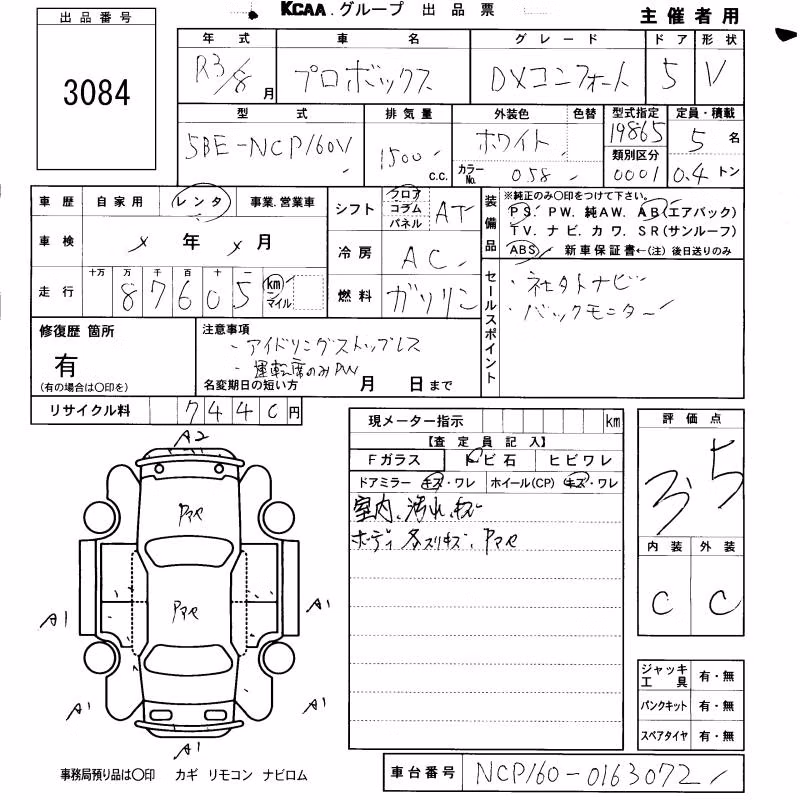 出品番号
3084
KCAA.グループ 出品票
主催者用
年式 車名 グレード ドア 形状
R3/8月 プロボックス DXコンフォート 5 V
型式 排気量 外装色 色替 型式指定 定員・積載
5BE-NCP160V 1500 c.c. ホワイト 19865 5名
カラーNo. 058 類別区分 0001 0.4トン
車歴 自家用 レンタ 事業.営業車
車検 × 年 × 月
走行 十万 万 千 百 十 一
87605 km マイル
シフト フロア コラム パネル AT
冷房 AC
燃料 ガソリン
装備品
※純正のみ○印をつけて下さい。
PS. PW. 純AW. AB(エアバック)
TV. ナビ. カワ. SR(サンルーフ)
ABS 新車保証書←(注)後日送りのみ
セールスポイント
・社外ナビ
・バックモニター
修復歴 箇所
有
(有の場合は○印を)
注意事項
・アイドリングストップレス
・運転席のみPW
名変期日の短い方 月 日まで
リサイクル料 7440円
現メーター指示 km
【査定員記入】
Fガラス トビ石 ヒビワレ
ドアミラー キズ・ワレ ホイール(CP) キズ・ワレ
室内、汚れ、キズ
ボディ 各スリキズ、
評価点
3.5
内装 外装
C C
A2
A1 A1
A1 A1
A1
ジャッキ工具 有・無
パンクキット 有・無
スペアタイヤ 有・無
事務局預り品は○印 カギ リモコン ナビロム
車台番号 NCP160-0163072